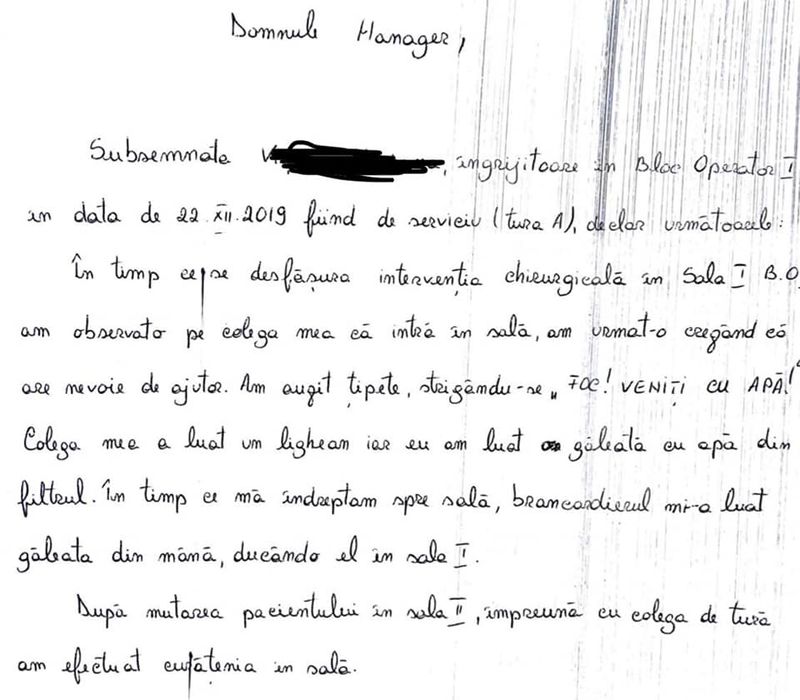 Domnule Manager,
Subsemnata V , îngrijitoare în Bloc Operator I
în data de 22.XII.2019 fiind de serviciu (tura A), declar următoarele:
În timp ce se desfășura intervenția chirurgicală în Sala I B.O.
am observato pe colega mea că intră în sală, am urmat-o crezând că
are nevoie de ajutor. Am auzit țipete, strigându-se „FOC! VENIȚI CU APĂ!"
Colega mea a luat un lighean iar eu am luat găleată cu apă din
filtrul. În timp ce mă îndreptam spre sală, brancardierul mi-a luat
găleata din mână, ducândo el în sala I.
După mutarea pacientului în sala II, împreună cu colega de tură
am efectuat curățenia în sală.